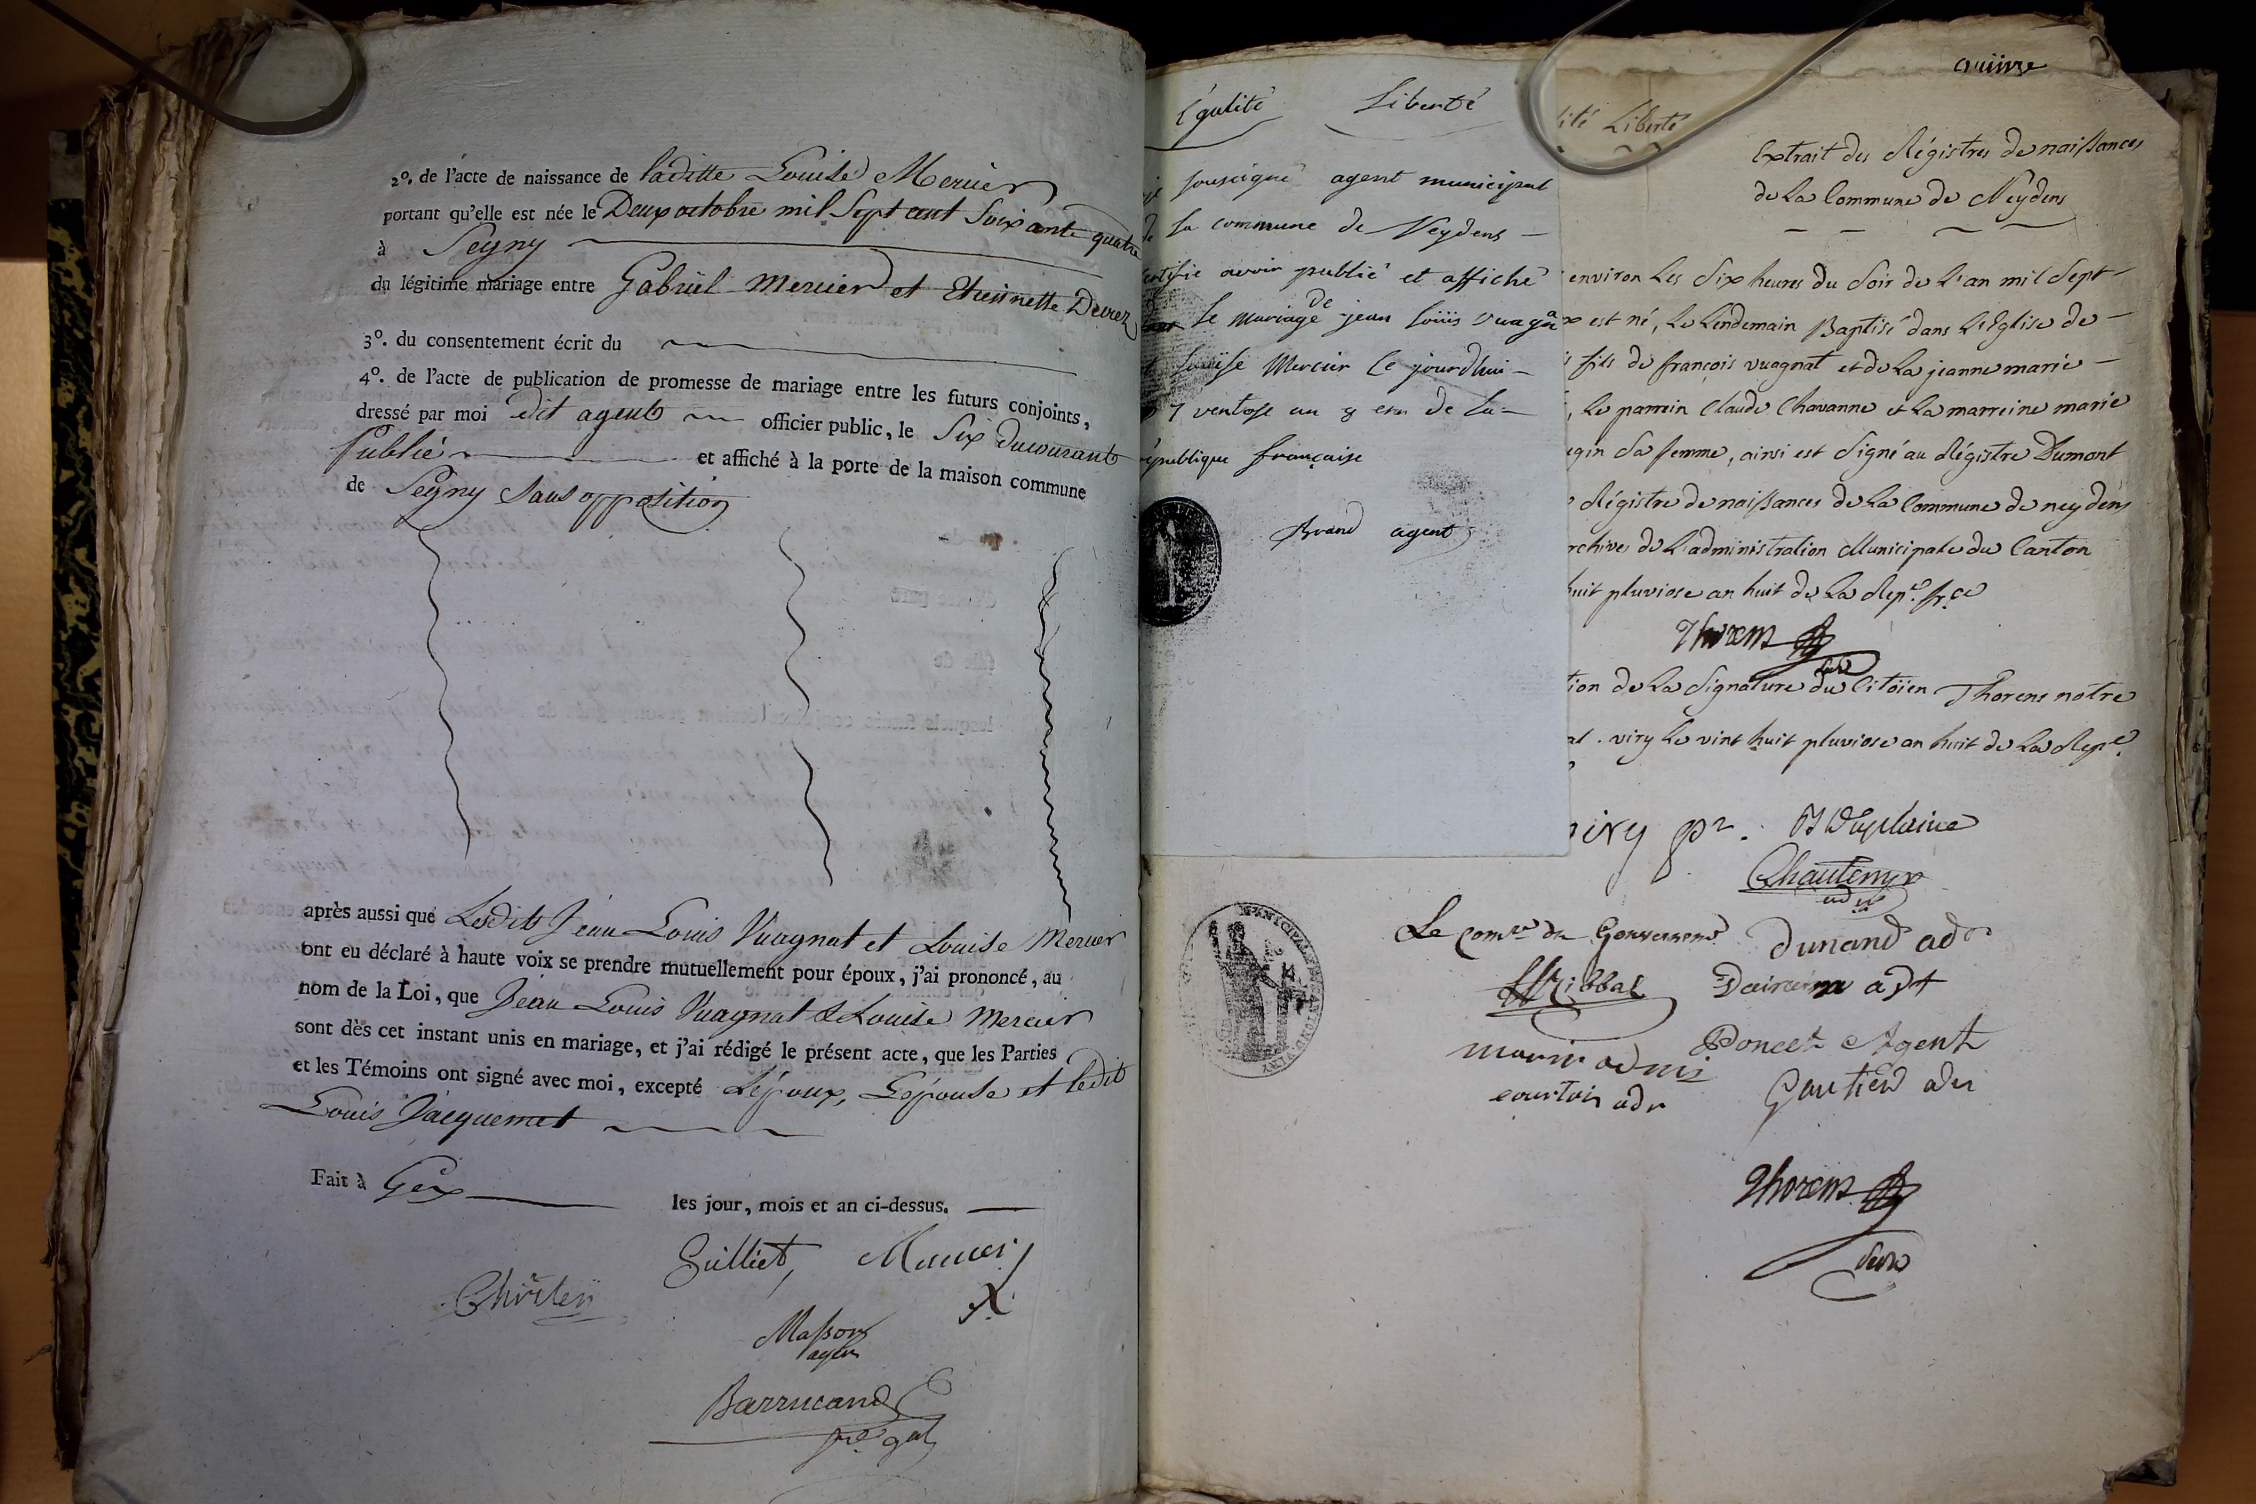 2º. de l'acte de naissance de laditte Louise Mercier
portant qu'elle est née le Deux octobre mil Sept cent Soixante quatre
à Segny
du légitime mariage entre Gabriel Mercier et Etiennette Devrez
3º. du consentement écrit du
4º. de l'acte de publication de promesse de mariage entre les futurs conjoints,
dressé par moi dit agent officier public, le Six du courant
Publié et affiché à la porte de la maison commune
de Segny Sans opposition
après aussi que Lesdits Jean Louis Vuagnat et Louise Mercier
ont eu déclaré à haute voix se prendre mutuellement pour époux, j'ai prononcé, au
nom de la Loi, que Jean Louis Vuagnat & Louise Mercier
sont dès cet instant unis en mariage, et j'ai rédigé le présent acte, que les Parties
et les Témoins ont signé avec moi, excepté L'époux, L'épouse et ledit
Louis Jacquemet
Fait à Gex les jour, mois et an ci-dessus.
Gulliet,
Masson
agent
Barrucand
Égalité Liberté
soussigné agent municipal
de la commune de Neydens
certifie avoir publié et affiché
le mariage de jean louis vuagna
louise Mercier ce jourdhui
7 ventose an 8 eme de la
république française
Brand agent
quinze
ité Liberté
Extrait des Régistres de naissances
de la Commune de Neydens
environ les six heures du soir de l'an mil sept
est né, le lendemain Baptisé dans l'église de
fils de françois vuagnat et de la jeanne marie
, le parrein Claude Chavanne et la marreine marie
sa femme, ainsi est signé au Régistre Dumont
Régistre de naissances de la Commune de neydens
rchives de l'administration Municipale du Canton
huit pluviose an huit de la Rep.e fr.ce
Thorens
tion de la signature du Citoïen Thorens notre
viry le vint huit pluviose an huit de la Rep.e
viry pr.
Duplaine
Chautemps
Le comre du Gouvernemt
dunand adr
Poncet Agent
Gautier adr
courtois adr
Thorens